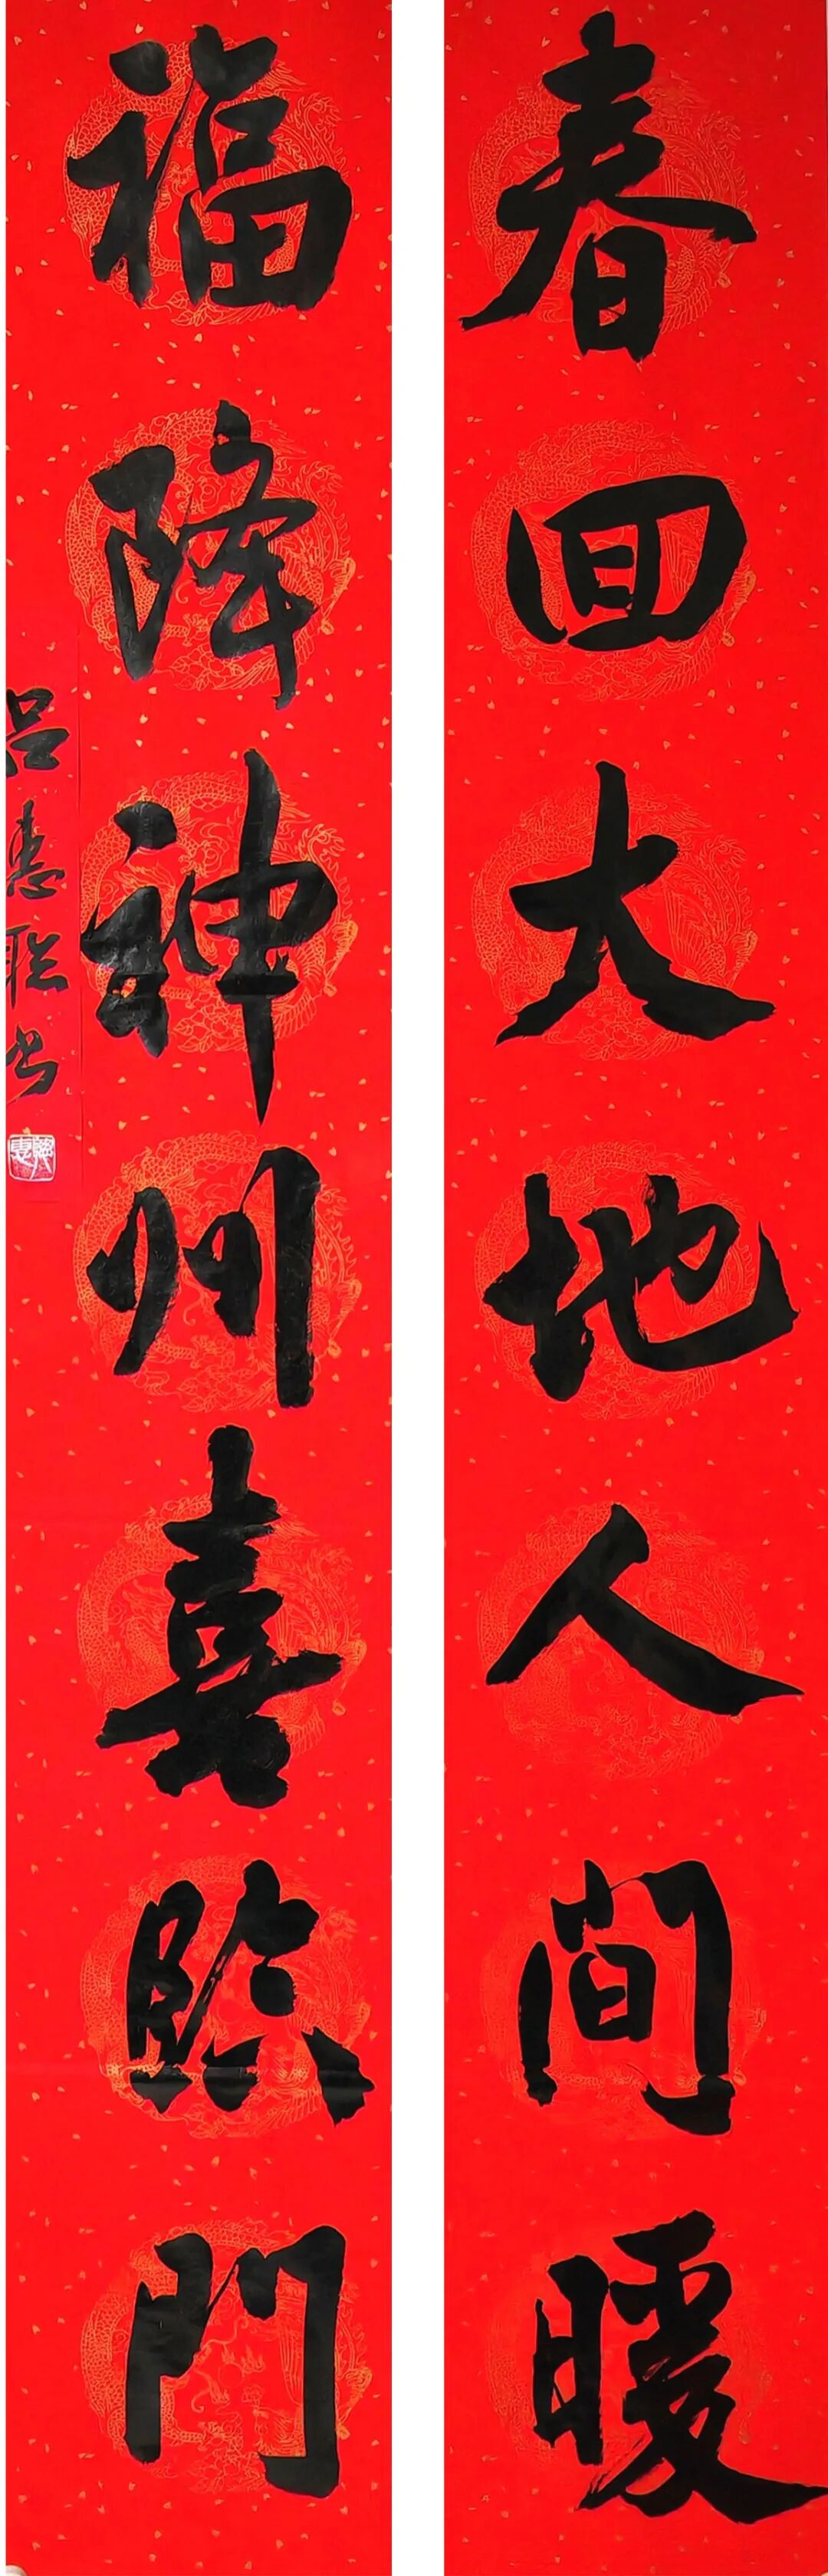 春回大地人间暖
福降神州喜臨門
吕惠聪书